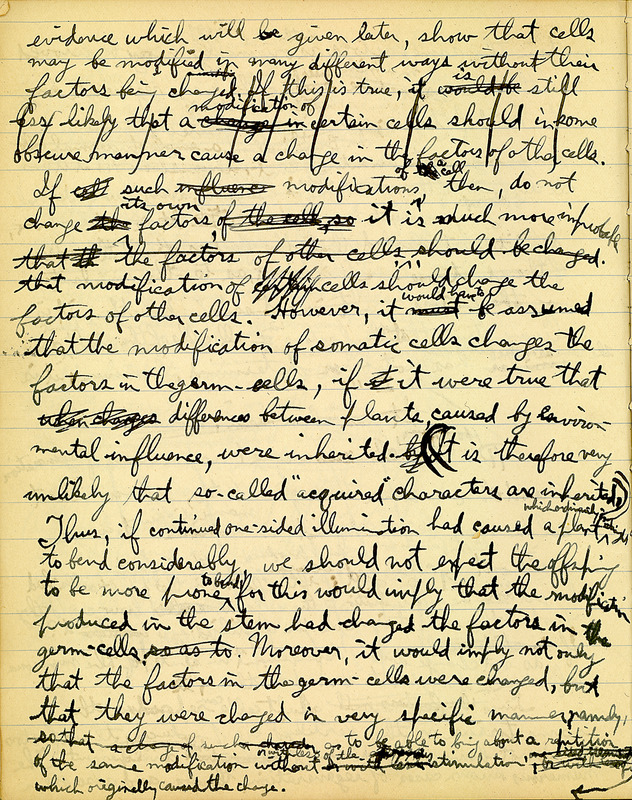 evidence which will be given later, show that cells
may be modified in many different ways without their
factors being changed. If this is true, it is would be still
less likely that a change in modification of certain cells should in some
obscure manner cause a change in the factors of other cells.
If such influence modifications of a cell, then, do not
change the its own factors, of the cell, so it is much more improbable
that the the factors of other cells should be changed.
that modification of cells should change the
factors of other cells. However, it must would have to be assumed
that the modification of somatic cells changes the
factors in the germ-cells, if it were true that
when changes differences between plants, caused by environ-
mental influence, were inherited. (It is therefore very
unlikely that so-called "acquired" characters are inherited.)
Thus, if continued one-sided illumination had caused a plant which ordinarily
to bend considerably, we should not expect the offspring
to be more prone to bend, for this would imply that the modification
produced in the stem had changed the factors in the
germ-cells, so as to. Moreover, it would imply not only
that the factors in the germ-cells were changed, but
that they were changed in very specific manner, namely,
so that a change of such as to be able to bring about a repitition
of the same modification without or with less of the stimulation
which originally caused the change.